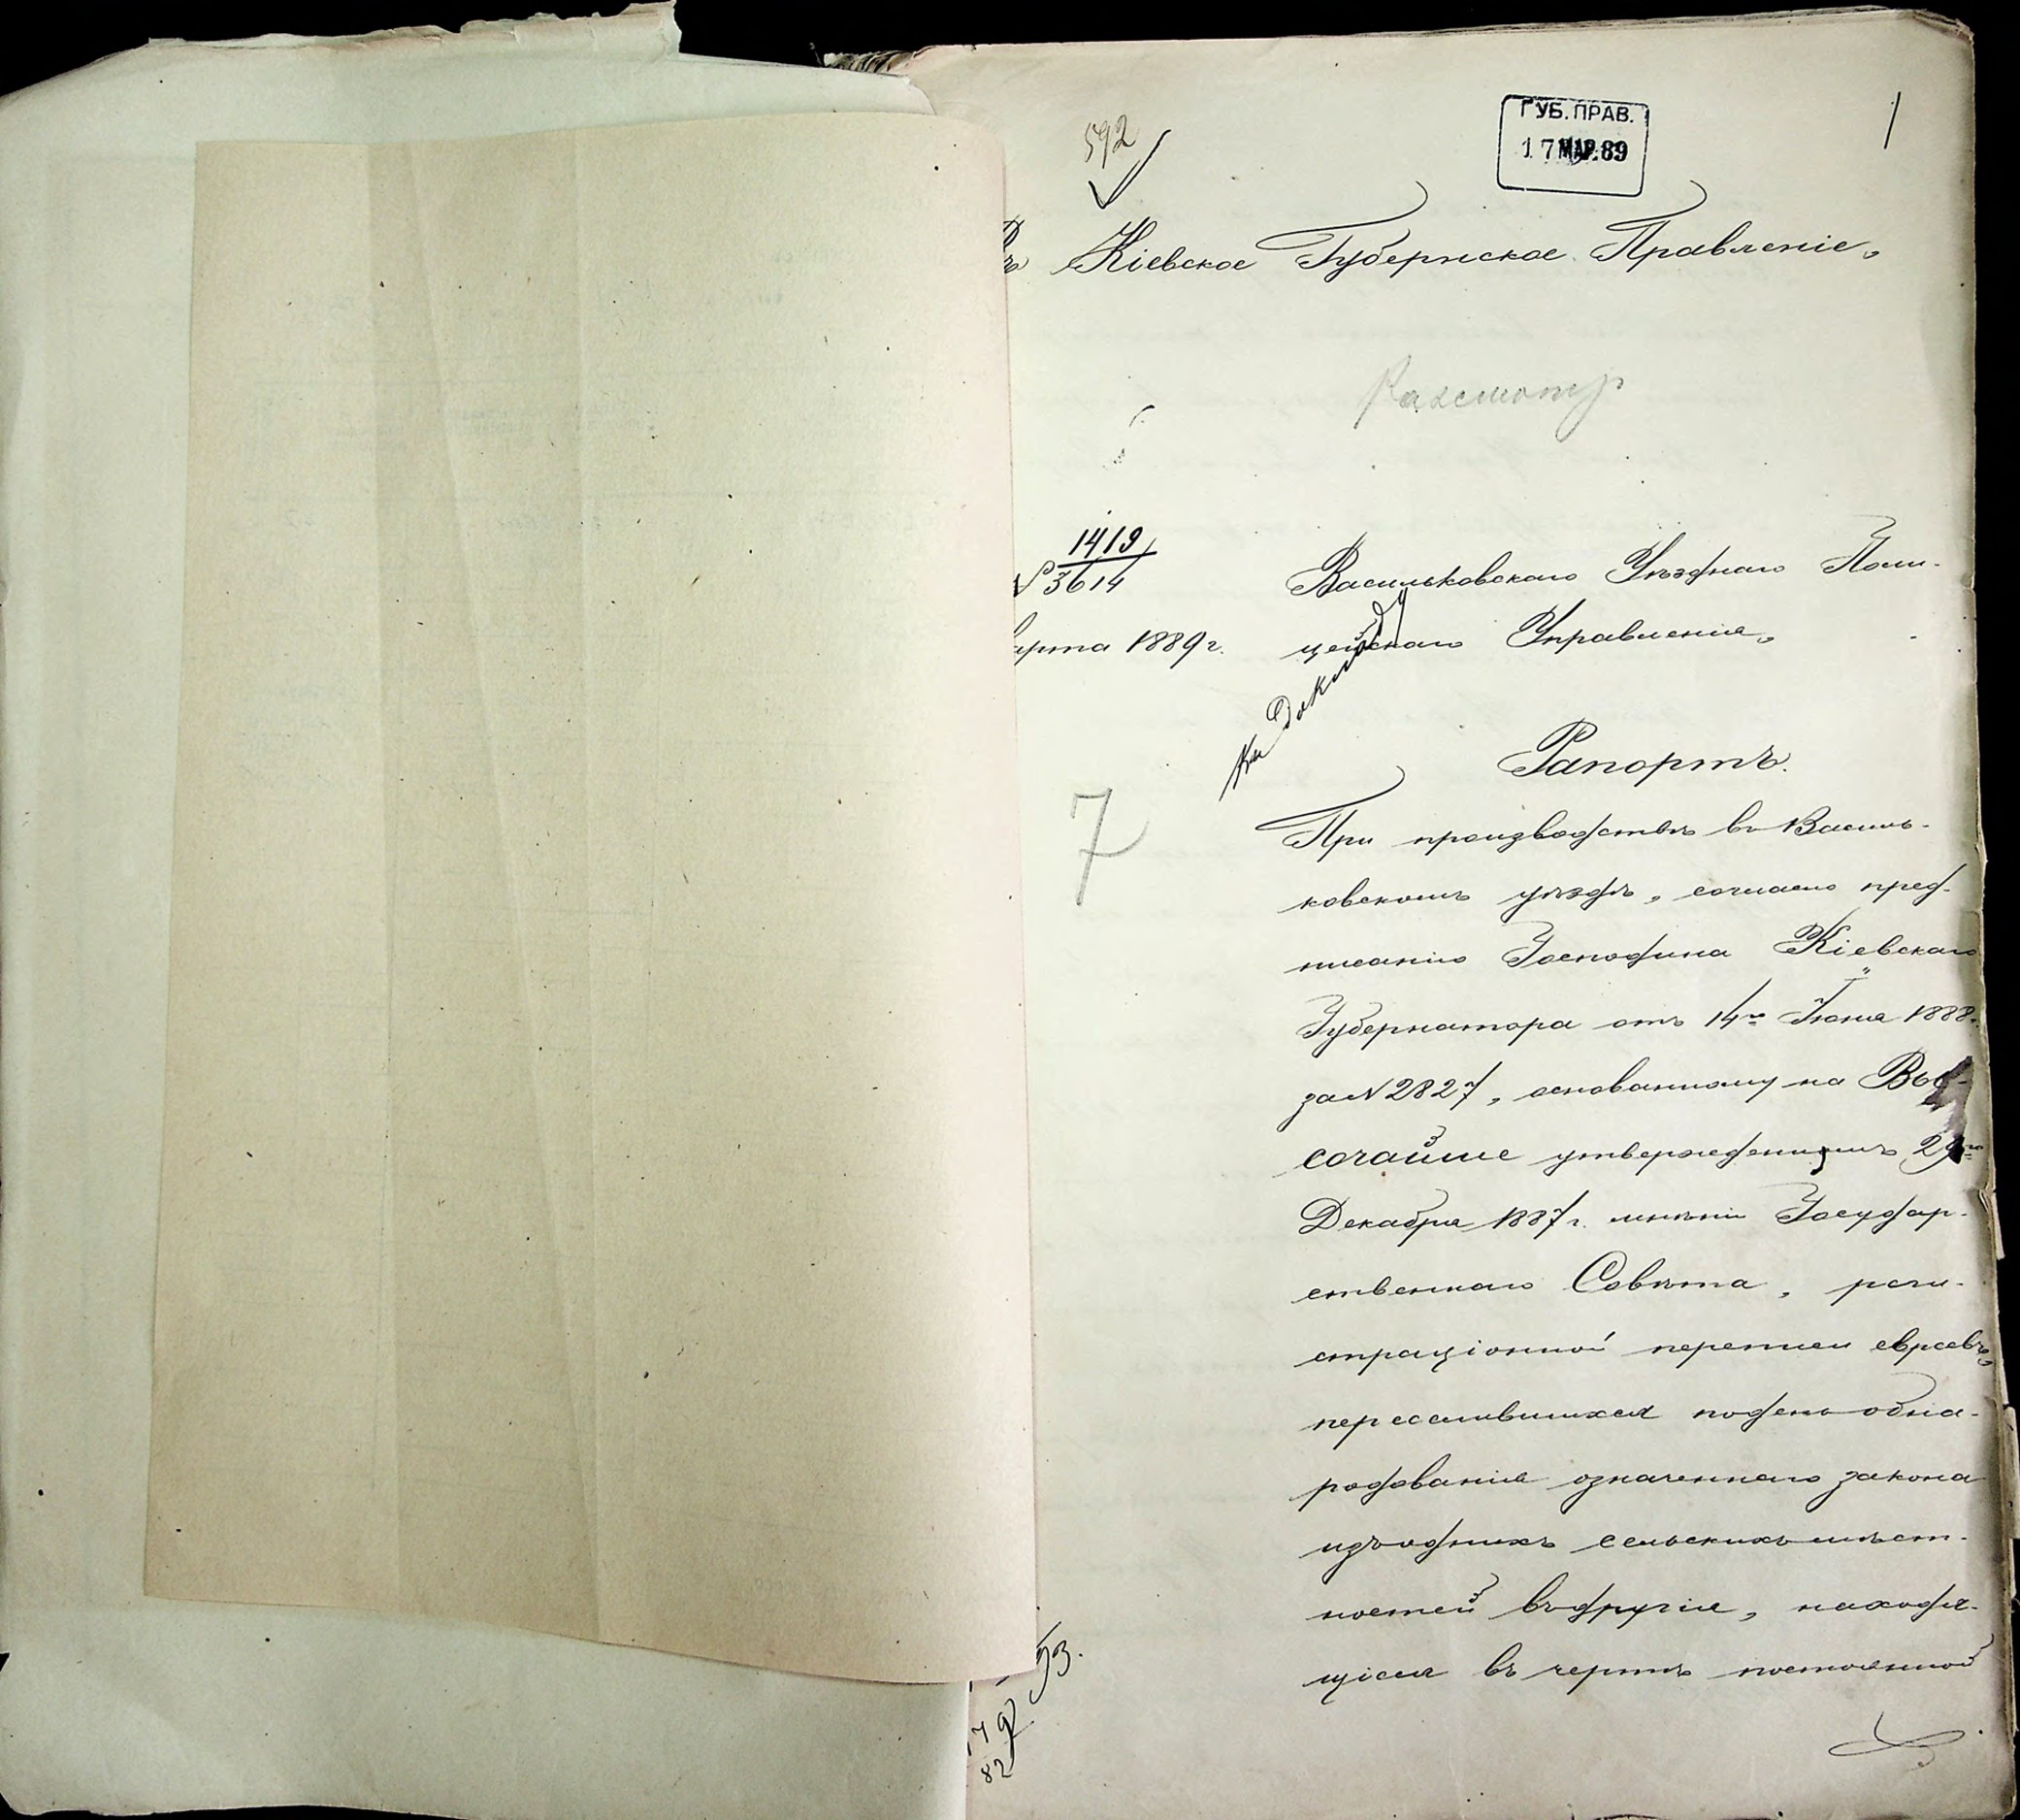 592
ГУБ. ПРАВ.
17 МАР. 89
1
Въ Кіевское Губернское Правленіе,
1419
№ 3614
арта 1889 г.
Васильковскаго Уѣзднаго Поли-
цейскаго Управленія,
Къ докладу
Рапортъ.
7
При производствѣ въ Василь-
ковскомъ уѣздѣ, согласно пред-
писанію Господина Кіевскаго
Губернатора отъ 14го Іюня 1888 г.
за № 2827, основанному на Вы-
сочайше утвержденномъ 29го
Декабря 1887 г. мнѣніи Государ-
ственнаго Совѣта, реги-
страціонной переписи евреевъ,
переселившихся по день обна-
родованія означеннаго закона
изъ однихъ сельскихъ мѣст-
ностей въ другія, находя-
щіеся въ чертѣ постоянной
93.
82